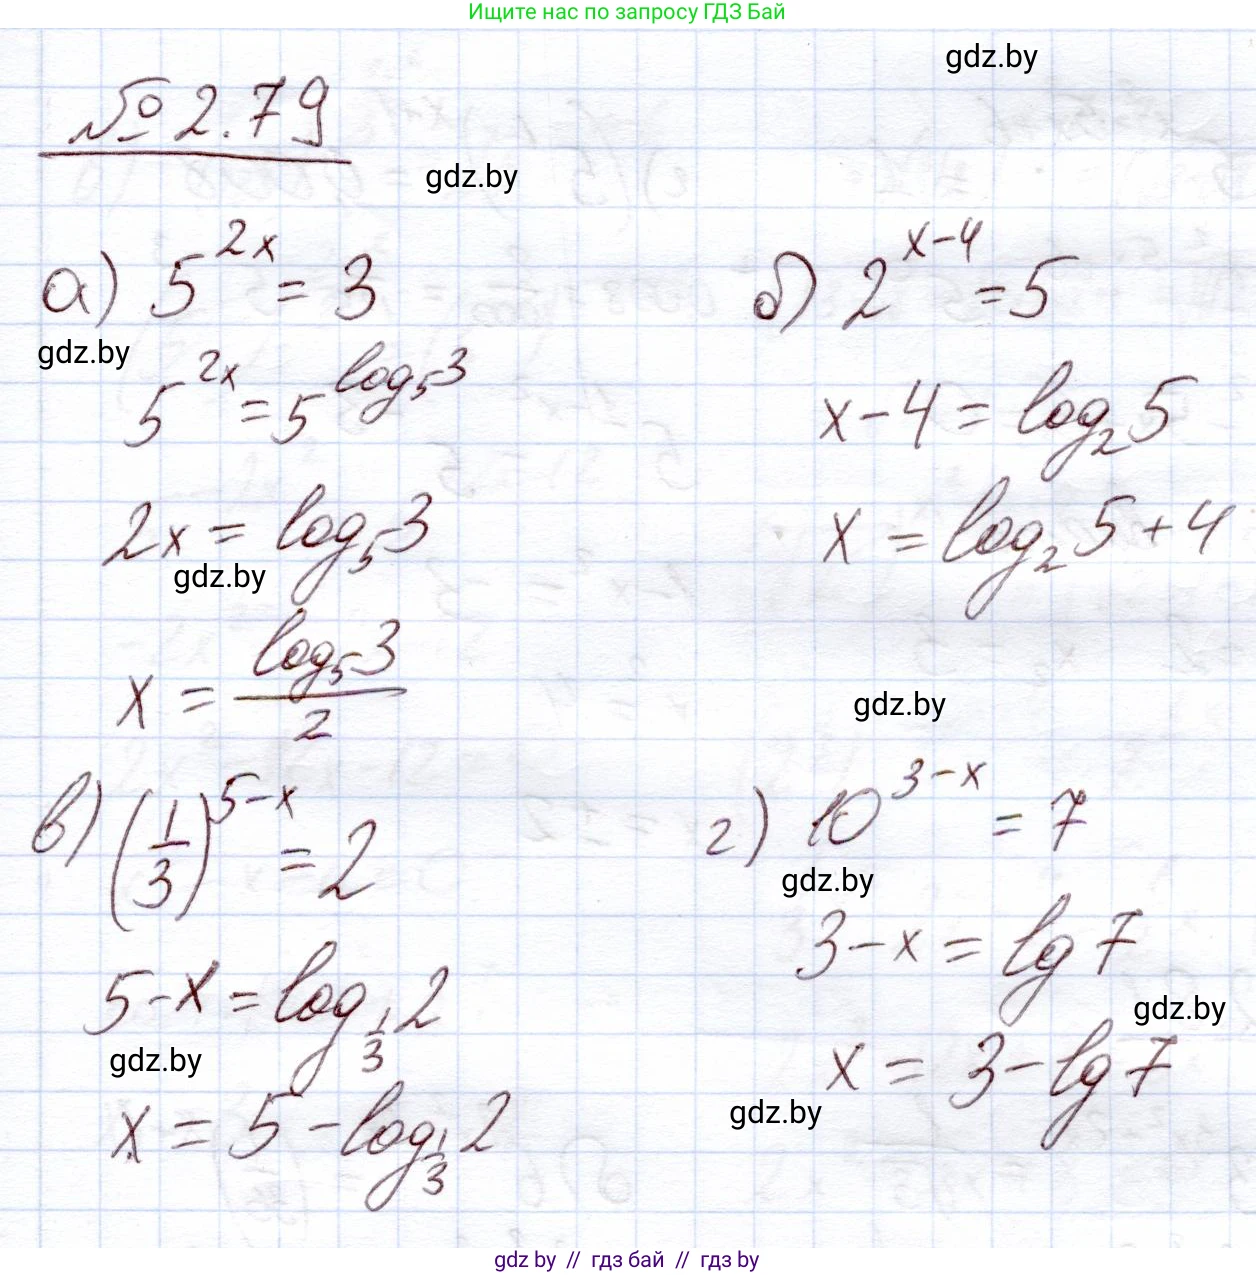 Ищите нас по запросу ГДЗ Бай
gdz.by
№ 2.79
gdz.by
а) 5^{2x} = 3
б) 2^{x-4} = 5
gdz.by
5^{2x} = 5^{log_5 3}
x - 4 = log_2 5
2x = log_5 3
x = log_2 5 + 4
gdz.by
x = \frac{log_5 3}{2}
gdz.by
в) (\frac{1}{3})^{5-x} = 2
г) 10^{3-x} = 7
gdz.by
5 - x = log_{\frac{1}{3}} 2
3 - x = lg 7
gdz.by
gdz.by
x = 5 - log_{\frac{1}{3}} 2
x = 3 - lg 7
gdz.by
gdz by // гдз бай // гдз by